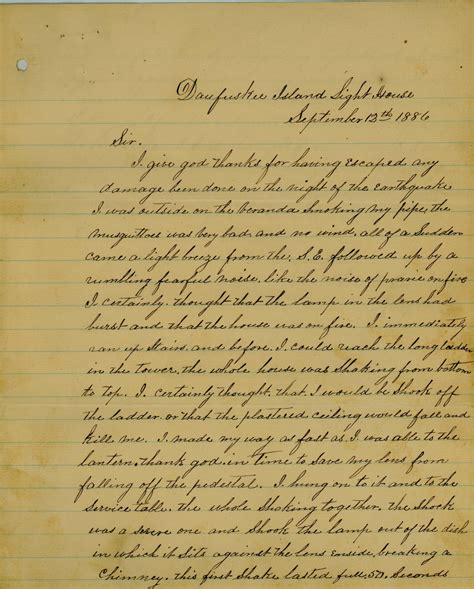 Daufuskee Island Light House
September 13th 1886
Sir.
I give god thanks for having Escaped any
damage been done on the night of the Earthquake
I was outside on the veranda Smoking My pipe, the
Musquittoes was very bad and no wind, all of a Sudden
came a light breeze from the S.E. followed up by a
rumbling fearful noise, like the noise of prarie on fire
I certainly thought that the lamp in the lens had
burst and that the house was on fire. I immediately
ran up Stairs and before I could reach the long ladder
in the tower, the whole house was Shaking from bottom
to top. I certainly thought, that I would be Shook off
the ladder or that the plastered ceiling would fall and
kill me. I made my way as fast as I was able to the
lantern. thank god in time to Save my lens from
falling off the pedestal. I hung on to it and to the
Service table. the whole Shaking together, the Shock
was a severe one and Shook the lamp out of the dish
in which it Sits against the lens Enside, breaking a
Chimney. this first Shake lasted full, 50, Seconds